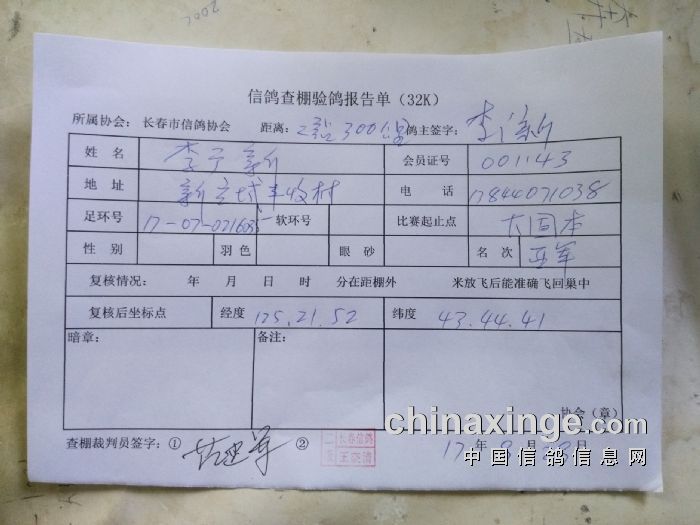 信鸽查棚验鸽报告单（32K）
所属协会： 长春市信鸽协会 距离： 2站300公里 鸽主签字： 李
姓 名 李 新 会员证号 001143
地 址 新立城丰收村 电 话 17844071038
足环号 17-07-0216035 软环号 比赛起止点 大固本
性 别 羽 色 眼 砂 名 次 亚军
复核情况： 年 月 日 时 分在距棚外 米放飞后能准确飞回巢中
复核后坐标点 经度 125.21.52 纬度 43.44.41
暗章： 备注：
协会（章）
查棚裁判员签字：① ② 二 长春信鸽 王晓清 17 年 8 月 28 日
chinaxinge.com
中国信鸽信息网